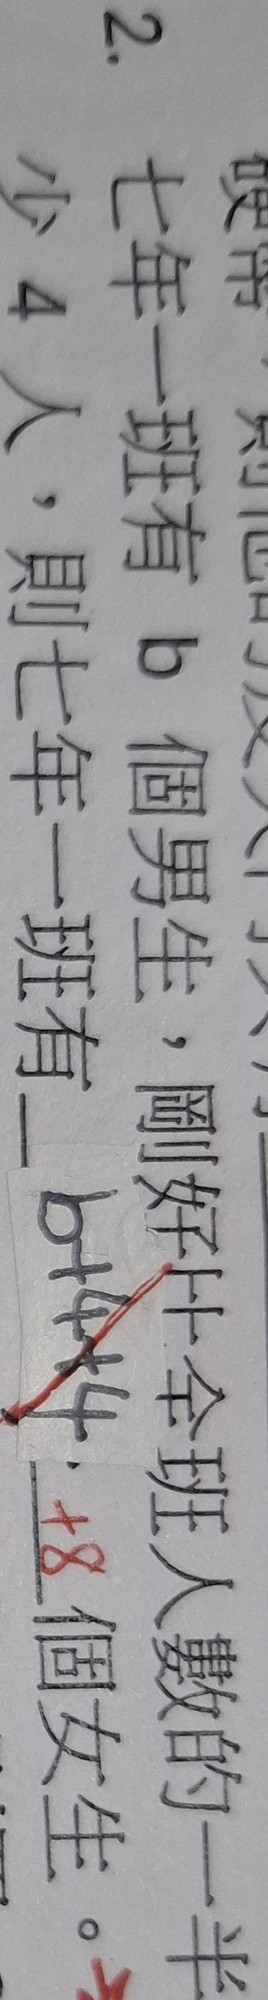 2. 七年一班有 b 個男生，剛好比全班人數的一半
少 4 人，則七年一班有 b+4+4 +8 個女生。